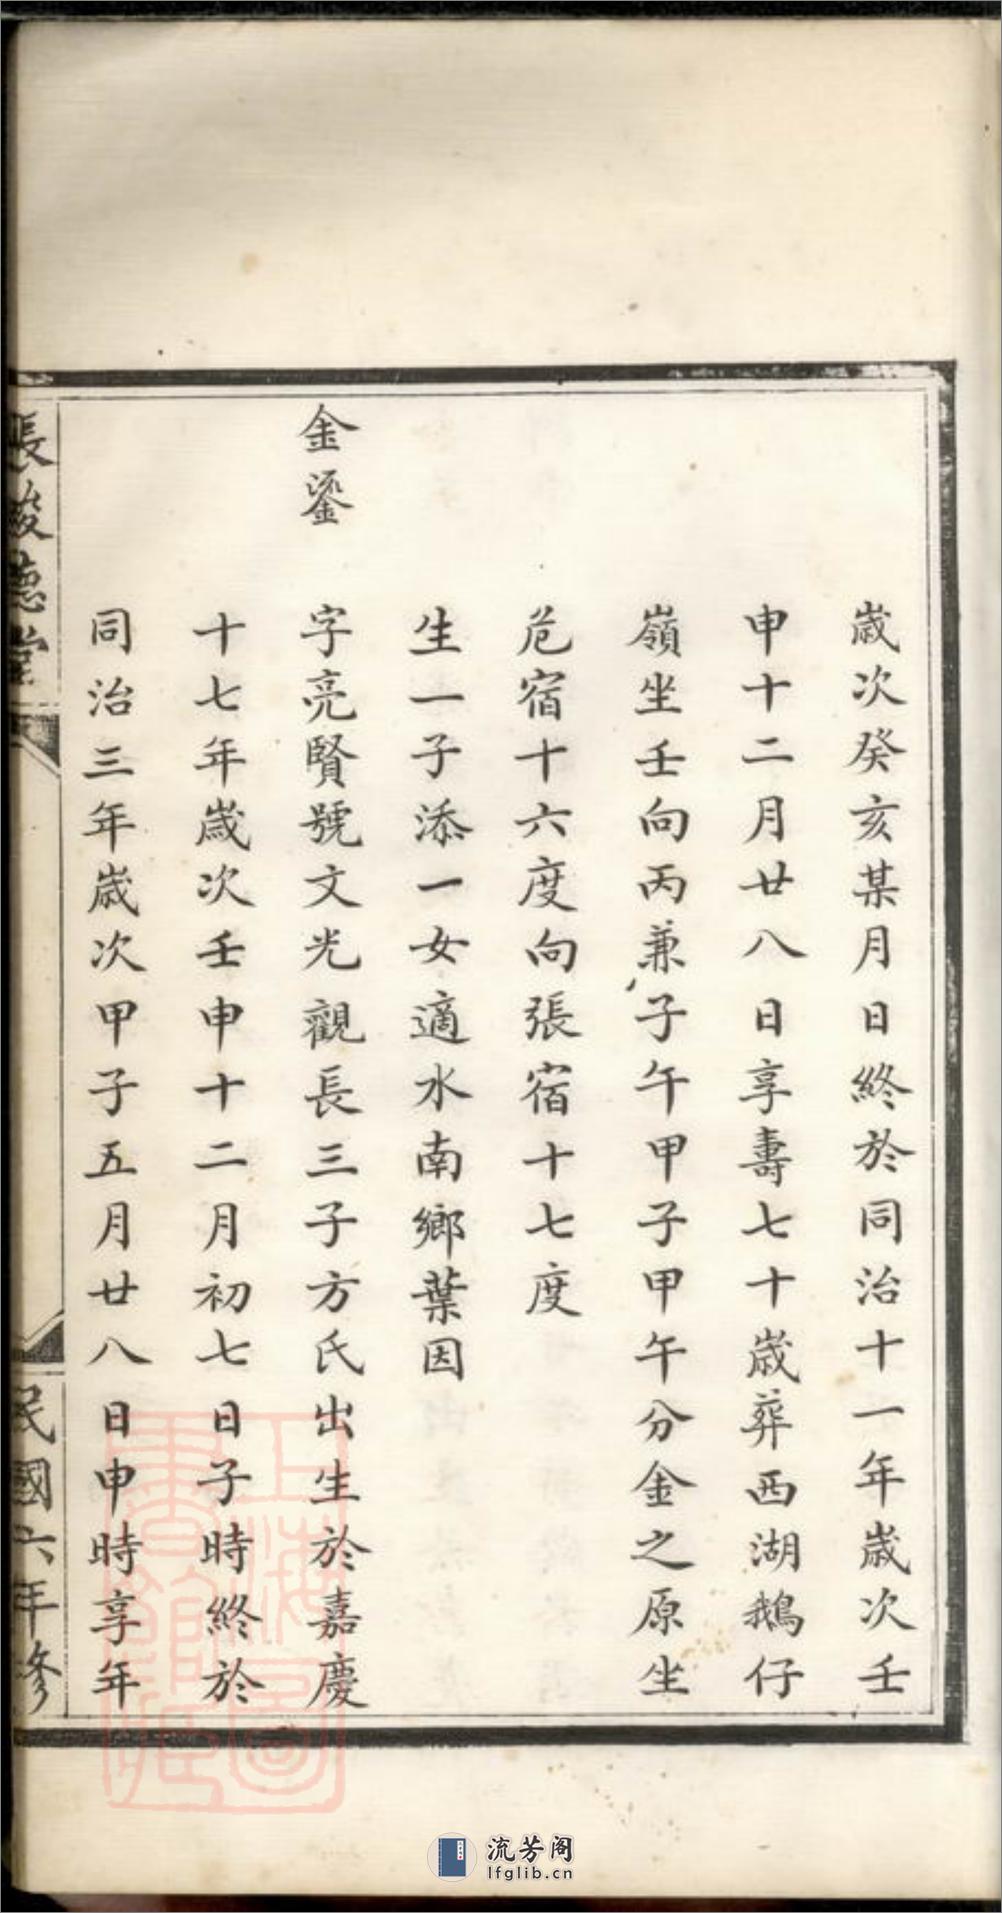 歲次癸亥某月日終於同治十一年歲次壬
申十二月廿八日享壽七十歲葬西湖鵝仔
嶺坐壬向丙兼子午甲子甲午分金之原坐
危宿十六度向張宿十七度
生一子添一女適水南鄉葉因
金鎏 字亮賢號文光觀長三子方氏出生於嘉慶
十七年歲次壬申十二月初七日子時終於
同治三年歲次甲子五月廿八日申時享年
張峻德堂 民國六年修
上海圖書館藏
流芳阁
lfglib.cn